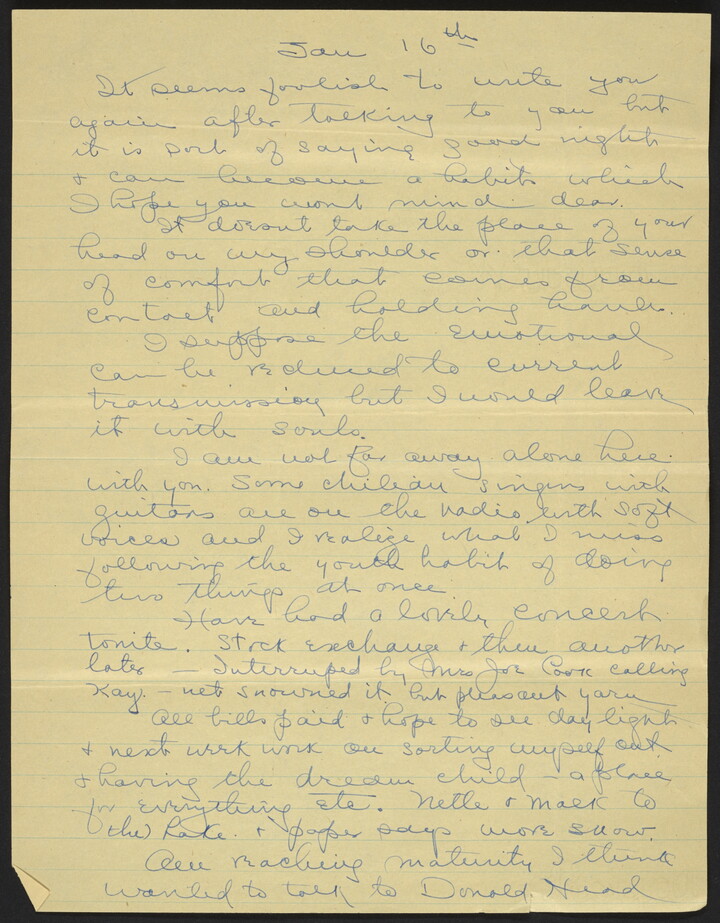 Jan 16th
It seems foolish to write you
again after talking to you but
it is sort of saying good night
+ can become a habit which
I hope you wont mind dear.
It doesnt take the place of your
head on my shoulder or that sense
of comfort that comes from
contact and holding hands.
I suppose the emotional
can be reduced to current
transmission but I would leave
it with souls.
I am not far away alone here
with you. Some chilean singers with
guitars are on the radio with soft
voices and I realize what I miss
following the youth habit of doing
two things at once
Have had a lovely concert
tonite. Stock exchange + then another
later — Interruped by Mrs Joe Cook calling
Kay. — net snowned it but pleasant yarn
All bills paid + hope to see day light
+ next week work on sorting myself out
+ having the dream child — a place
for everything etc. Nelle + Mack to
the Lake. + paper says more snow.
Am reaching maturity I think
wanted to talk to Donald Head